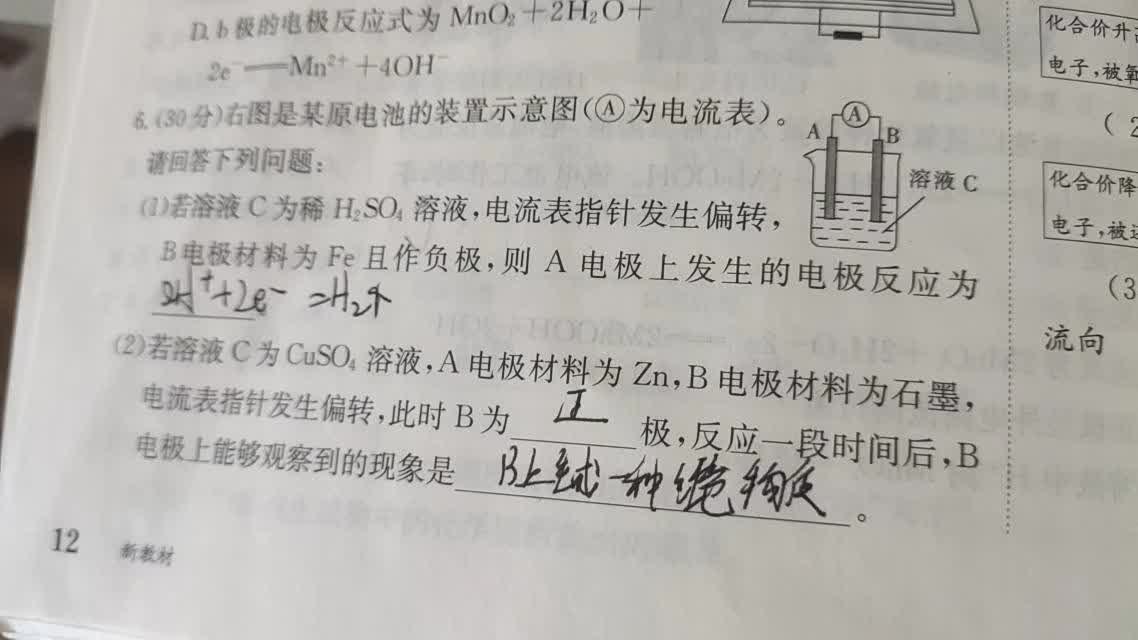 D. b极的电极反应式为 MnO₂+2H₂O+
2e⁻══Mn²⁺+4OH⁻
6.(30分)右图是某原电池的装置示意图(Ⓐ为电流表)。
请回答下列问题:
A
A
B
溶液 C
(1)若溶液 C 为稀 H₂SO₄ 溶液,电流表指针发生偏转,
B 电极材料为 Fe 且作负极,则 A 电极上发生的电极反应为
2H⁺+2e⁻=H₂↑
(2)若溶液 C 为 CuSO₄ 溶液,A 电极材料为 Zn,B 电极材料为石墨,
电流表指针发生偏转,此时 B 为 正 极,反应一段时间后,B
电极上能够观察到的现象是 B上 一种 物质 。
12
新教材
化合价升
电子,被氧
(2
化合价降
电子,被还
(3
流向